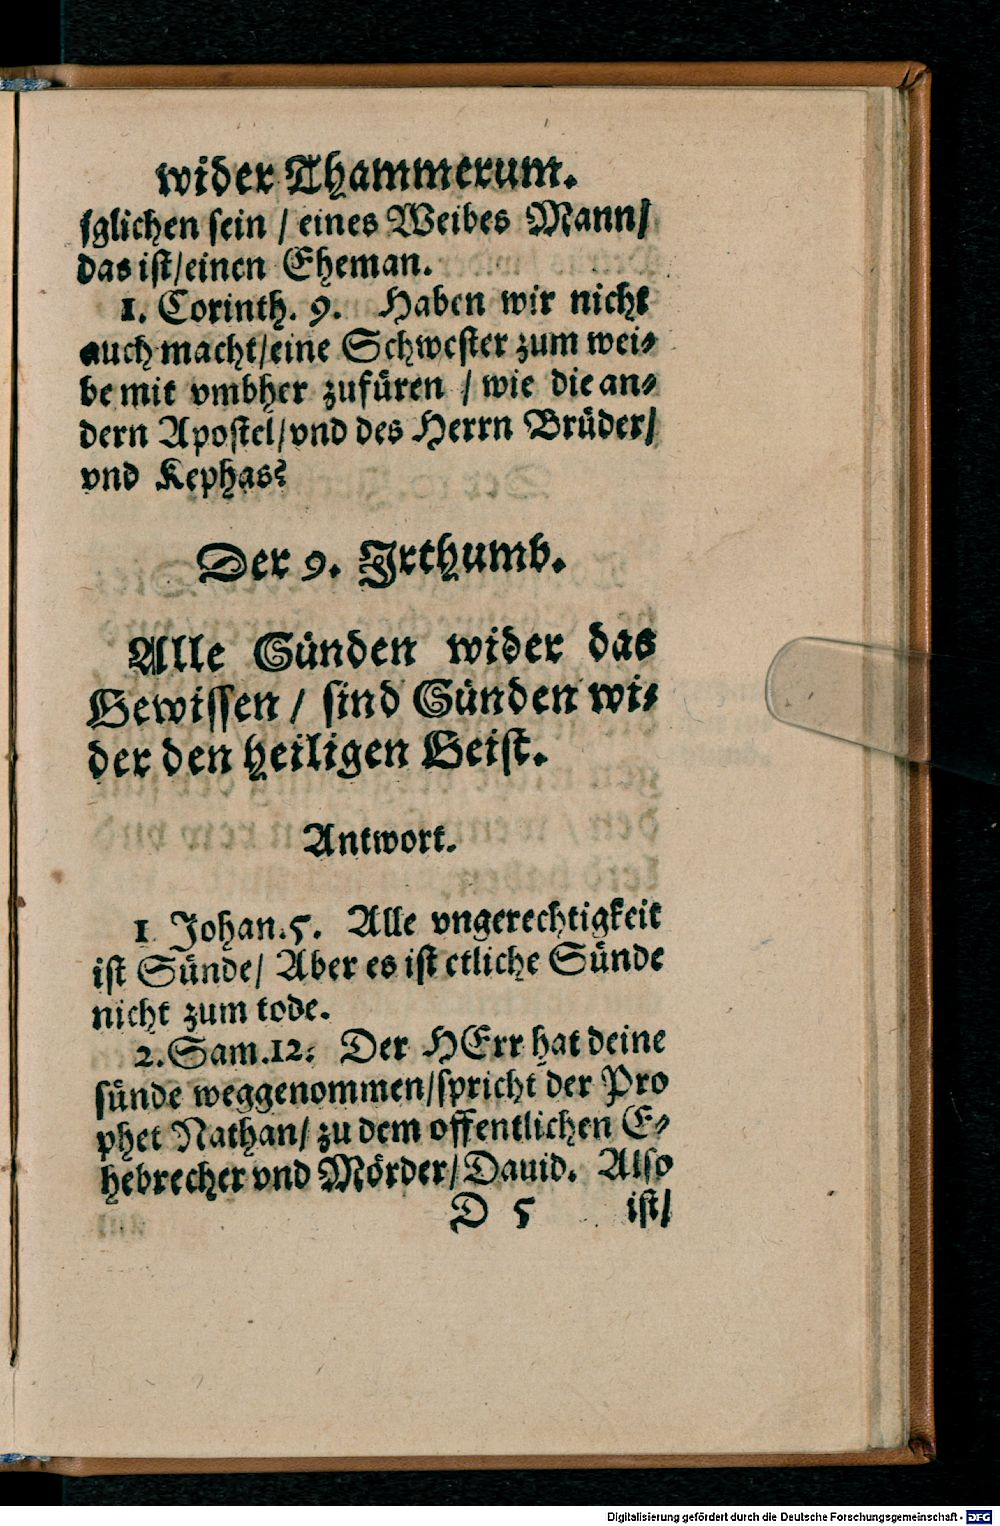 wider Thammerum.
sglichen sein / eines Weibes Mann/
das ist/einen Eheman.
1. Corinth. 9. Haben wir nicht
auch macht/eine Schwester zum wei⸗
be mit vmbher zufüren / wie die an⸗
dern Apostel/vnd des Herrn Brüder/
vnd Kephas?
Der 9. Irthumb.
Alle Sünden wider das
Gewissen / sind Sünden wi⸗
der den heiligen Geist.
Antwort.
1 Johan.5. Alle vngerechtigkeit
ist Sünde/ Aber es ist etliche Sünde
nicht zum tode.
2.Sam.12: Der HErr hat deine
sünde weggenommen/spricht der Pro
phet Nathan/ zu dem offentlichen E⸗
hebrecher vnd Mörder/Dauid. Also
D 5 ist/
Digitalisierung gefördert durch die Deutsche Forschungsgemeinschaft - DFG